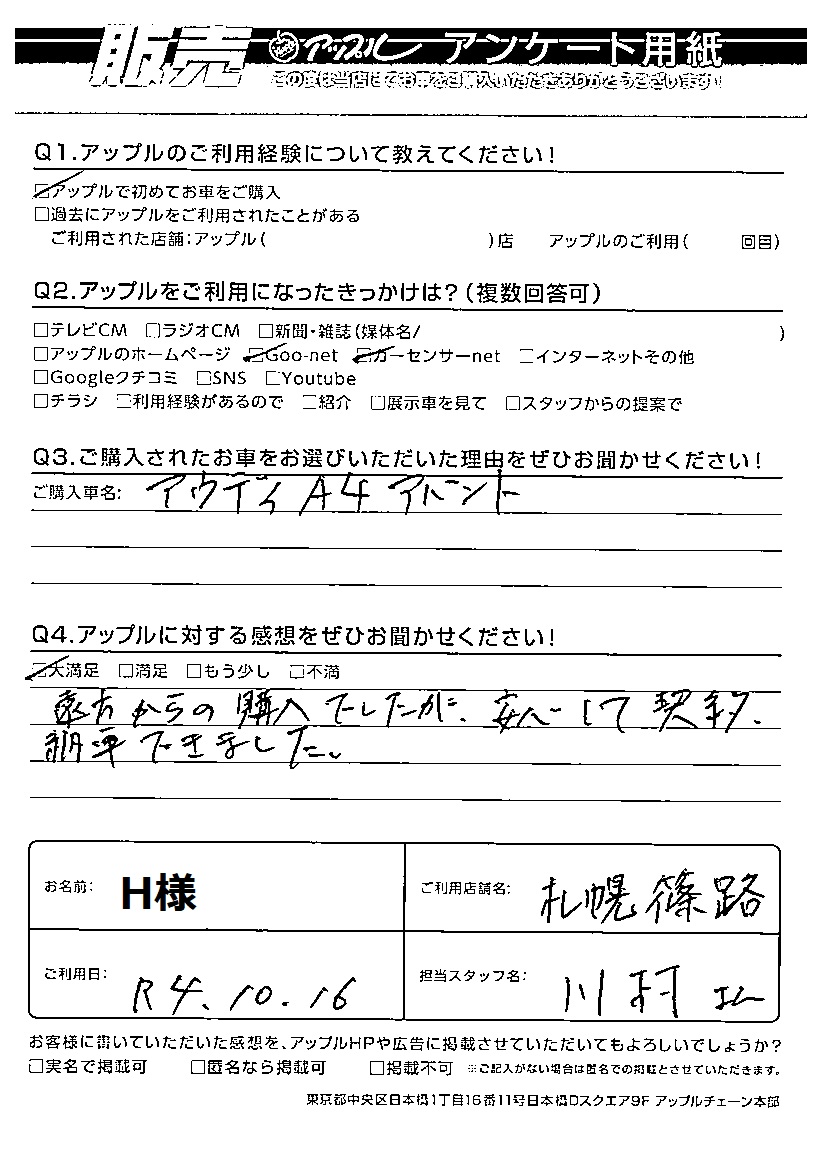 販売 アップル アンケート用紙
この度は当店にてお車をご購入いただきありがとうございます!
Q1.アップルのご利用経験について教えてください!
☑アップルで初めてお車をご購入
□過去にアップルをご利用されたことがある
ご利用された店舗:アップル( )店 アップルのご利用( 回目)
Q2.アップルをご利用になったきっかけは?(複数回答可)
□テレビCM □ラジオCM □新聞・雑誌(媒体名/ )
□アップルのホームページ ☑Goo-net ☑カーセンサーnet □インターネットその他
□Googleクチコミ □SNS □Youtube
□チラシ □利用経験があるので □紹介 □展示車を見て □スタッフからの提案で
Q3.ご購入されたお車をお選びいただいた理由をぜひお聞かせください!
ご購入車名: アウディ A4 アバント
Q4.アップルに対する感想をぜひお聞かせください!
☑大満足 □満足 □もう少し □不満
遠方からの購入でしたが、安心して契約、
納車できました。
お名前: H様
ご利用店舗名: 札幌篠路
ご利用日: R4.10.16
担当スタッフ名: 川村
お客様に書いていただいた感想を、アップルHPや広告に掲載させていただいてもよろしいでしょうか?
□実名で掲載可 □匿名なら掲載可 □掲載不可 ※ご記入がない場合は匿名での掲載とさせていただきます。
東京都中央区日本橋1丁目16番11号日本橋Dスクエア9F アップルチェーン本部